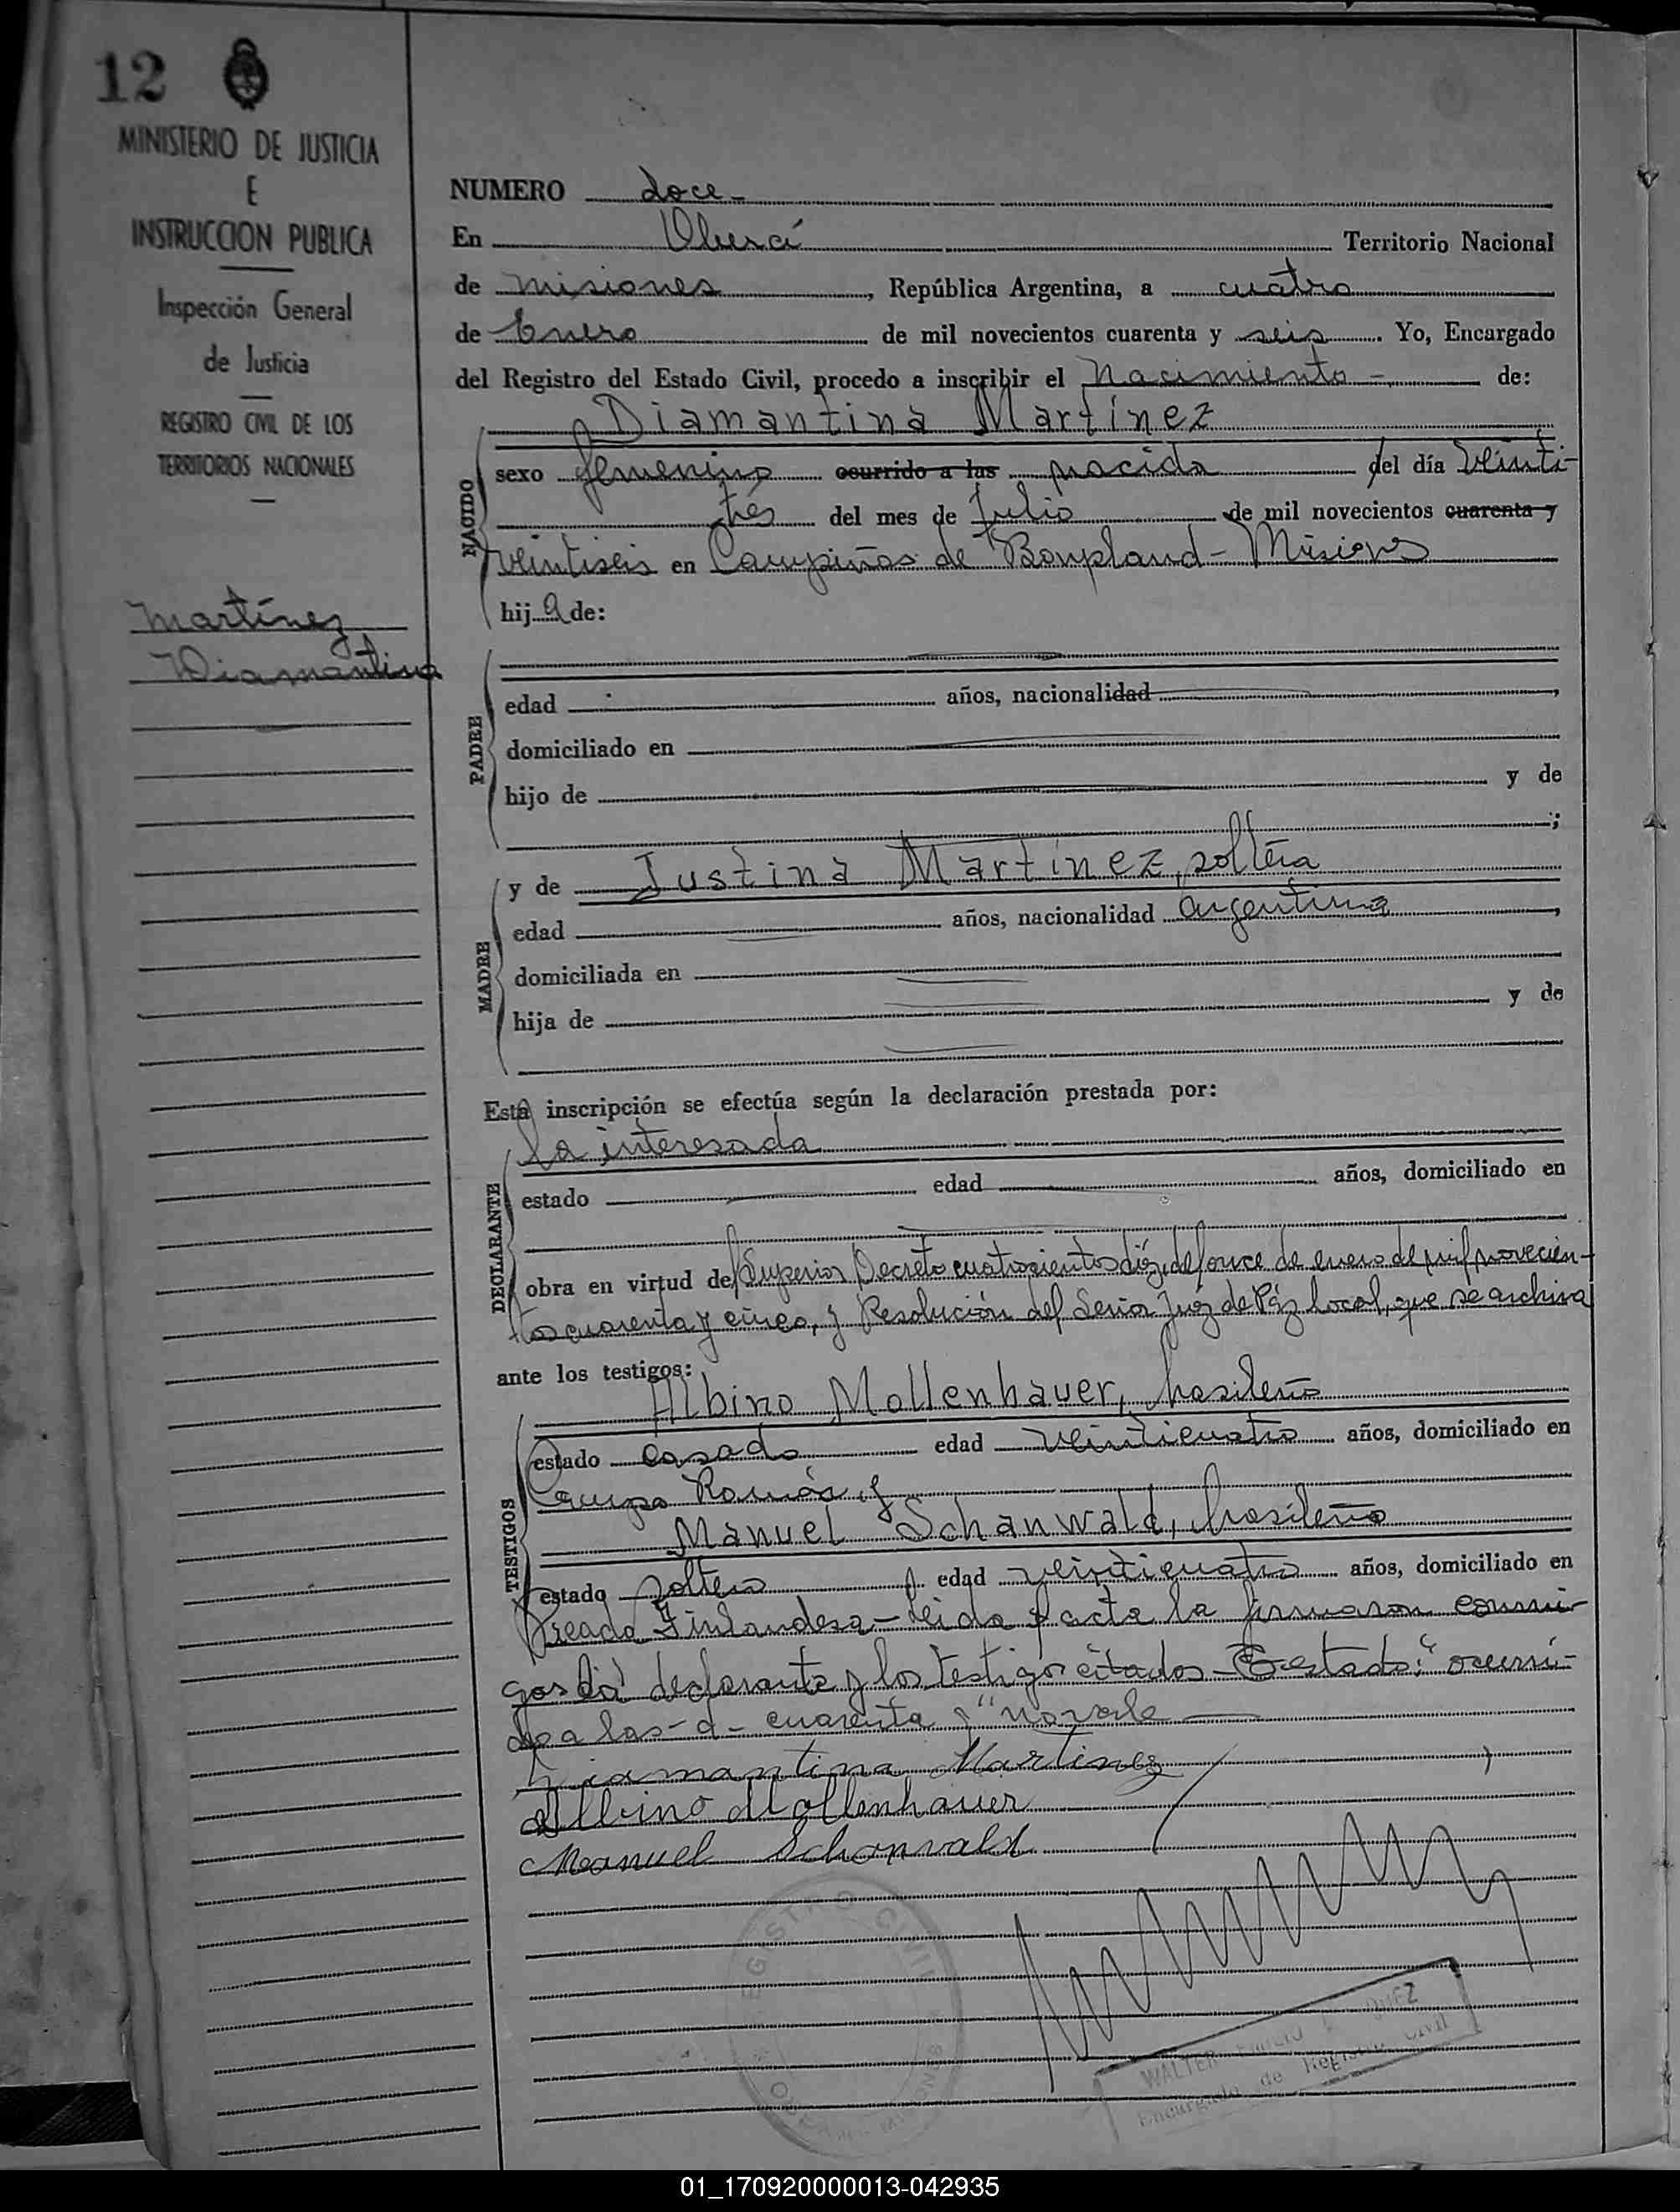 12
MINISTERIO DE JUSTICIA
E
INSTRUCCION PUBLICA
Inspección General
de Justicia
REGISTRO CIVIL DE LOS
TERRITORIOS NACIONALES
Martínez
Diamantina
NUMERO doce -
En Oberá Territorio Nacional
de misiones, República Argentina, a cuatro
de Enero de mil novecientos cuarenta y seis. Yo, Encargado
del Registro del Estado Civil, procedo a inscribir el Nacimiento - de:
Diamantina Martínez
NACIDO
sexo femenino ocurrido a las nacida del día veinti-
trés del mes de Julio de mil novecientos cuarenta y
veintiseis en Campiñas de Bonpland - Misiones
hija de:
PADRE
edad años, nacionalidad ,
domiciliado en
hijo de y de
;
MADRE
y de Justina Martínez, soltera
edad años, nacionalidad argentina,
domiciliada en
hija de y de
Esta inscripción se efectúa según la declaración prestada por:
la interesada
DECLARANTE
estado edad años, domiciliado en
obra en virtud del Superior Decreto cuatrocientos diez, del once de enero de mil novecien-
tos cuarenta y cinco, y Resolución del Señor Juez de Páz local, que se archiva
ante los testigos:
TESTIGOS
Albino Mollenhauer, brasileño
estado casado edad veinticuatro años, domiciliado en
Campo Ramón y
Manuel Schanwald, brasileño
estado soltero edad veinticuatro años, domiciliado en
Picada Finlandesa - Leida el acta la firmaron conmi-
go la declarante y los testigos citados - Testado: "ocurri-
do a las - d - cuarenta y" no vale
Diamantina Martinez
Albino Mollenhauer
Manuel Schonwald
REGISTRO CIVIL
WALTER
Encargado de Registro Civil
01_170920000013-042935